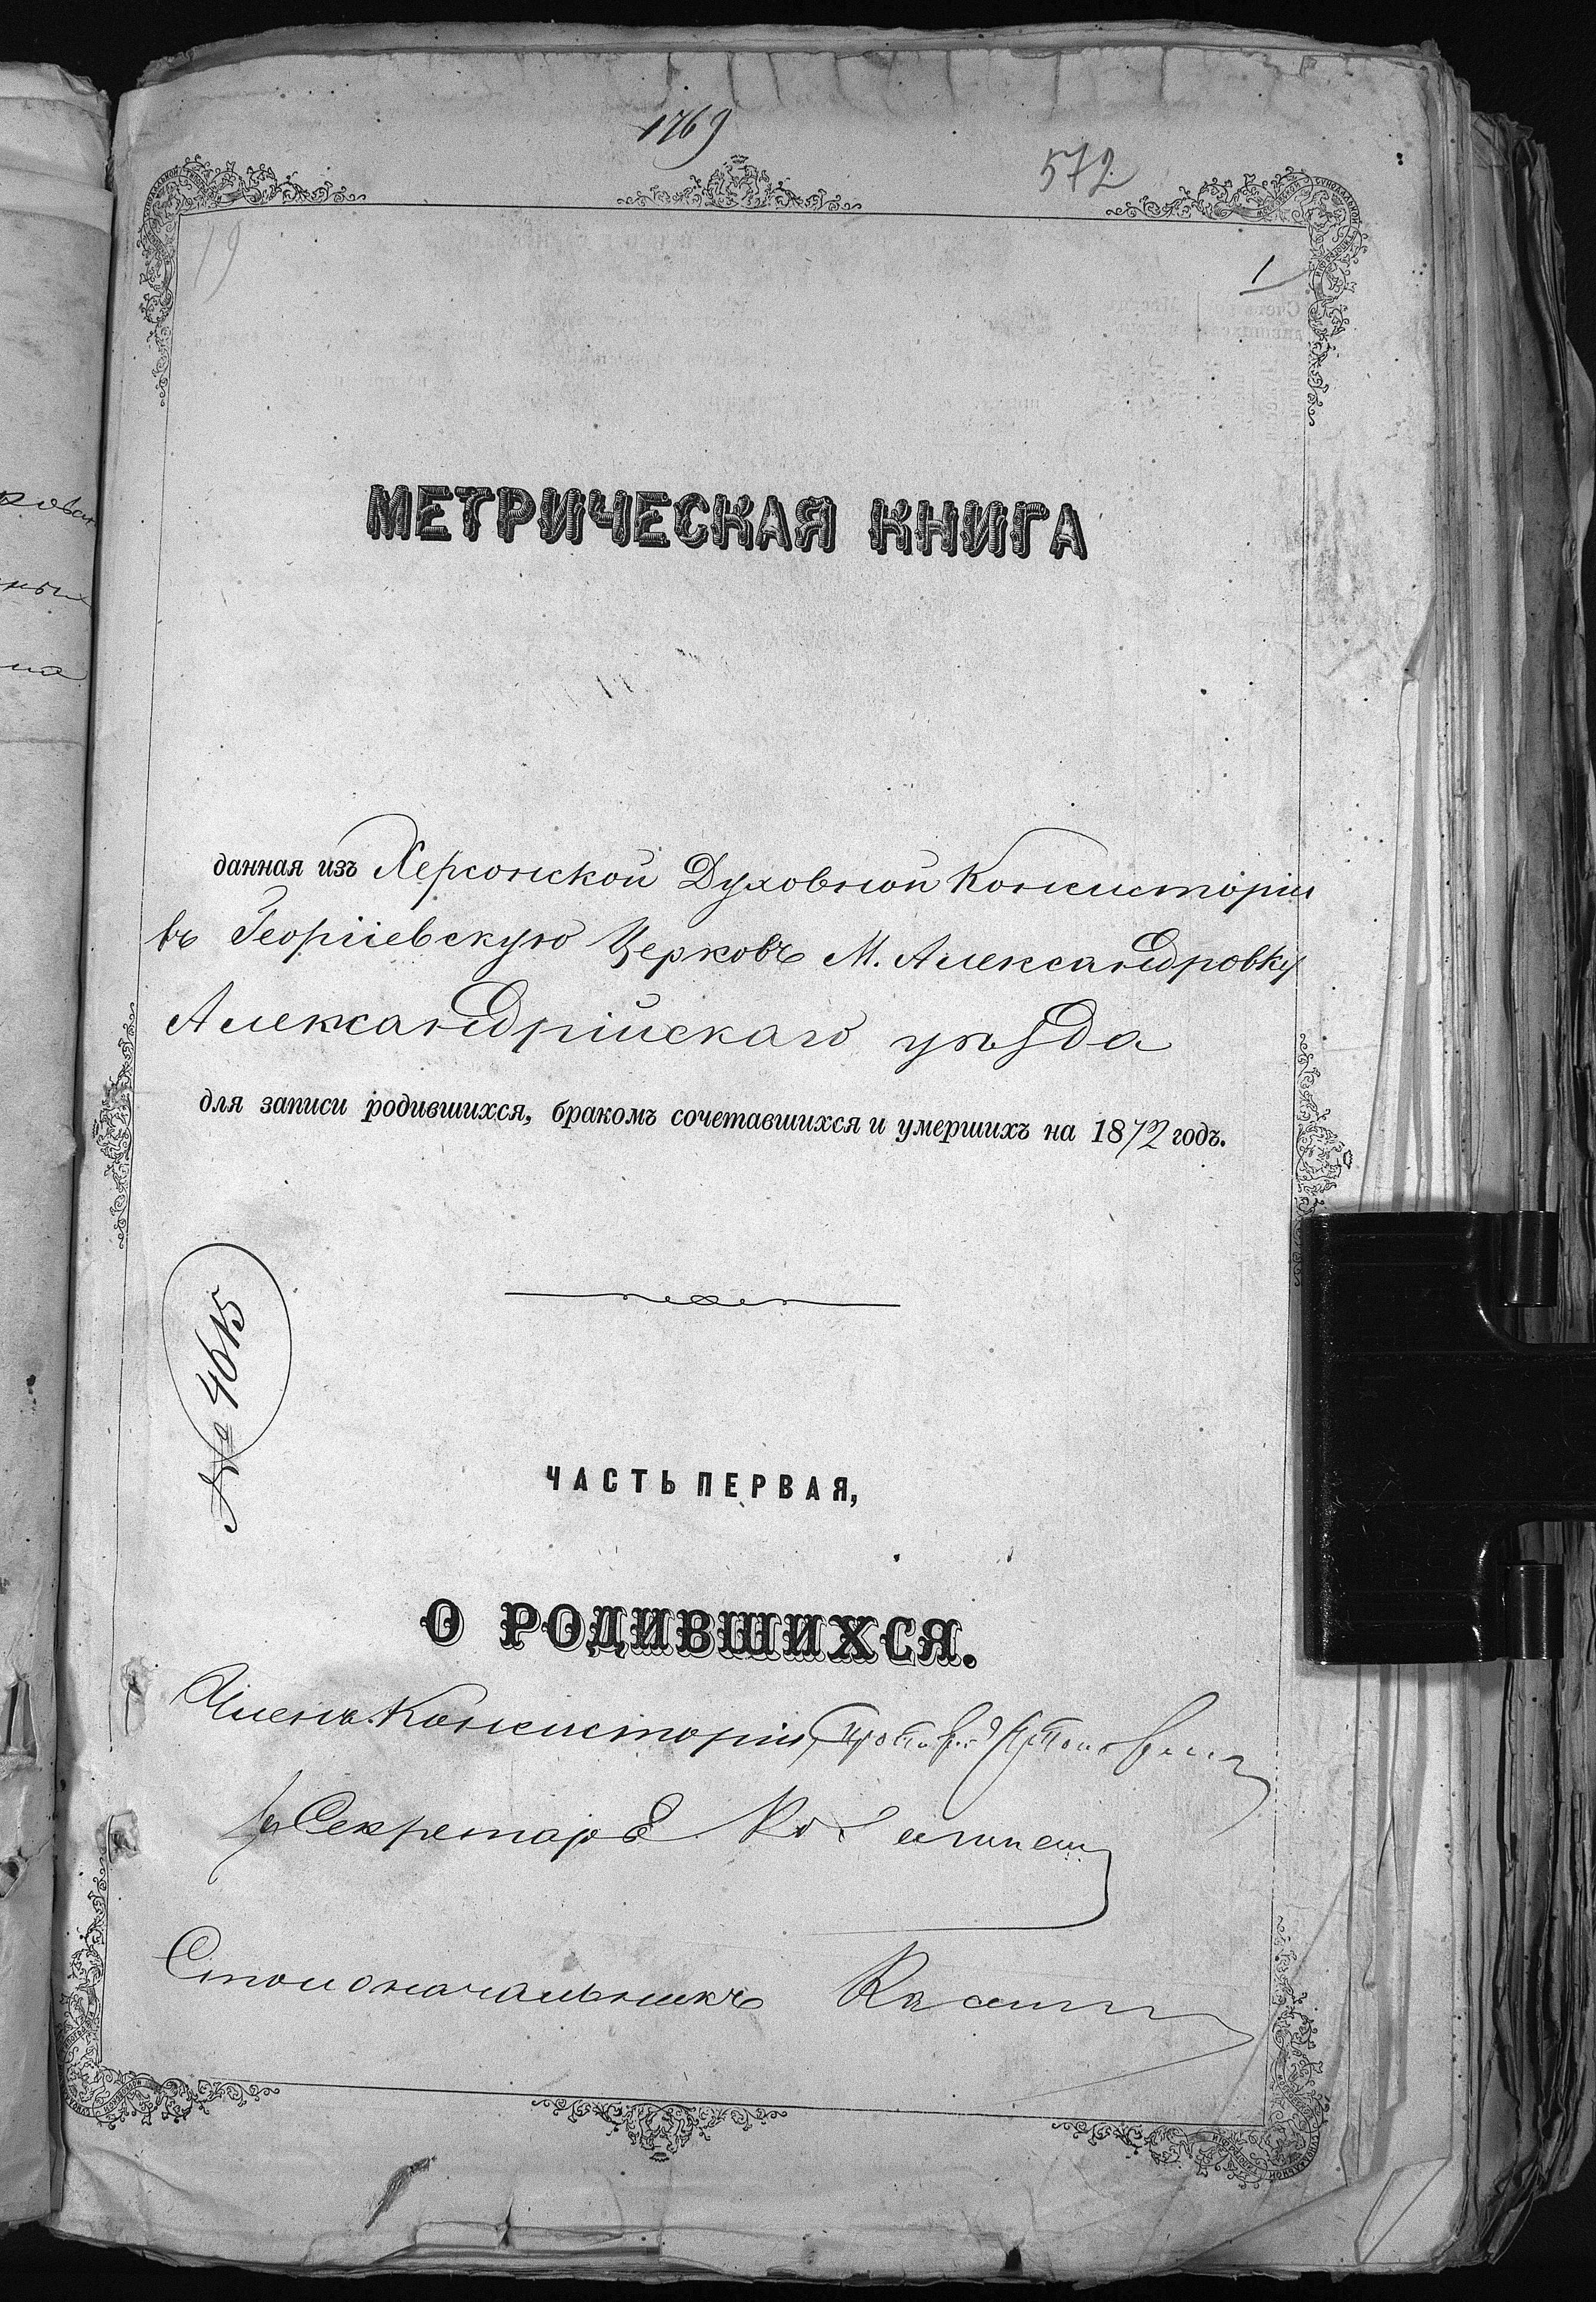 1769
572
19
1
МЕТРИЧЕСКАЯ КНИГА
данная изъ Херсонской Духовной Консисторіи
въ Георгіевскую Церковь М. Александровку
Александрійскаго уѣзда
для записи родившихся, бракомъ сочетавшихся и умершихъ на 1872 годъ.
№ 4615
ЧАСТЬ ПЕРВАЯ,
О РОДИВШИХСЯ.
Членъ Консисторіи,
Секретарь
Столоначальникъ